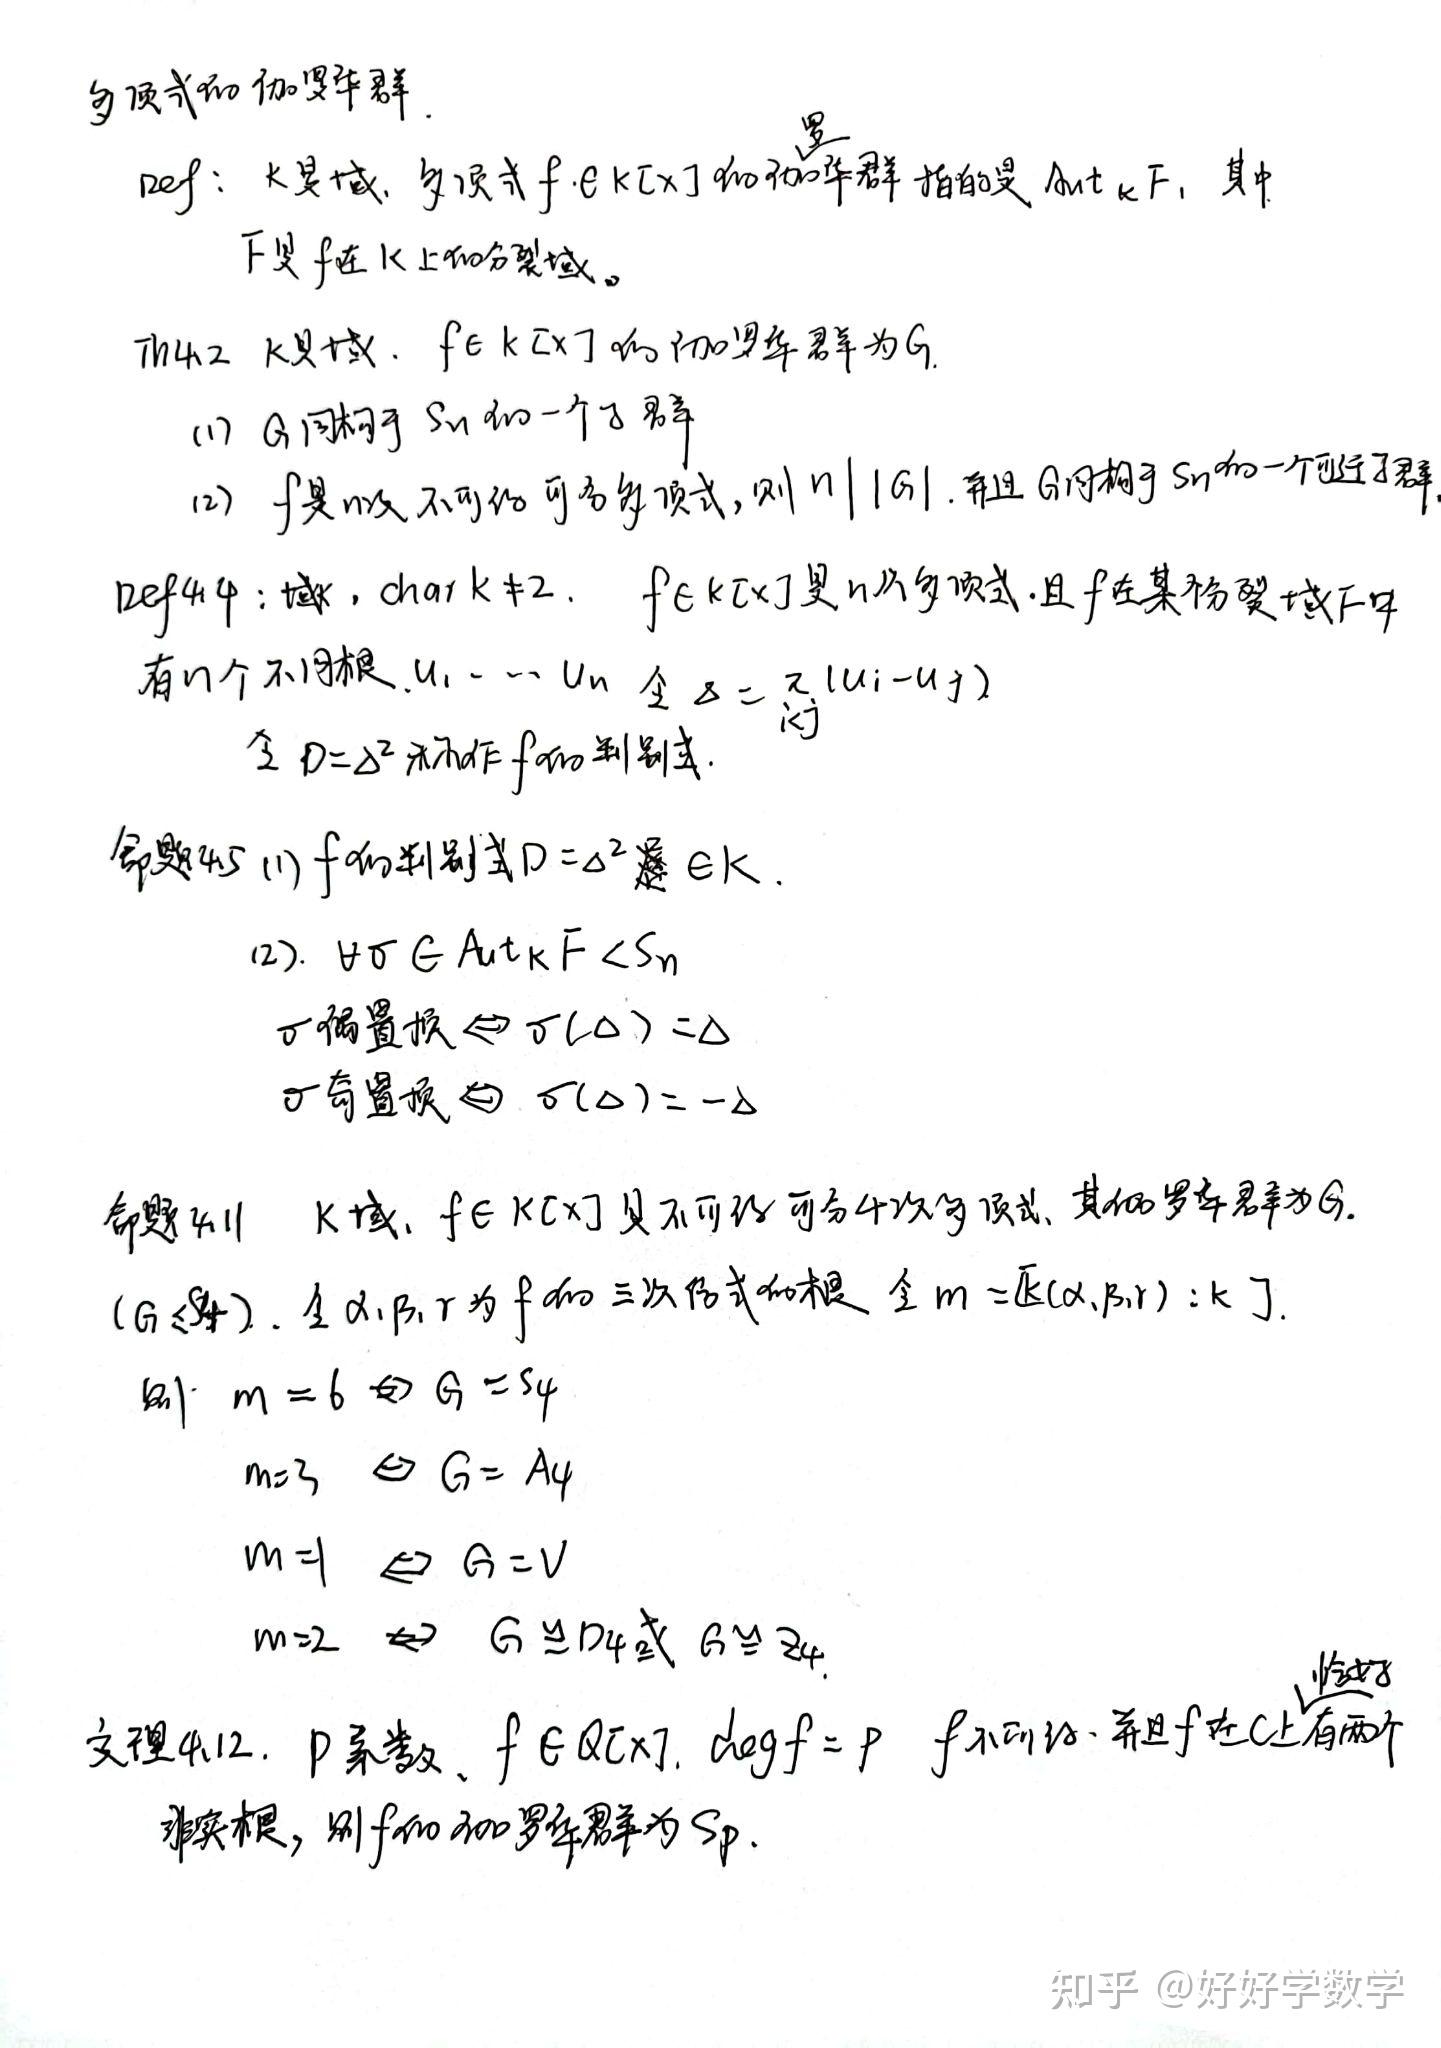 多项式的伽罗华群.
Def: K是域, 多项式 f∈K[x]的伽罗华群指的是 Aut_K F, 其中
F是f在K上的分裂域。
Th4.2 K是域. f∈K[x]的伽罗华群为G.
(1) G同构于 Sn 的一个子群
(2) f是n次不可约可分多项式, 则 n||G|. 并且 G同构于 Sn的一个可迁子群.
Def4.4: 域K, char K≠2. f∈K[x]是n次多项式.且f在某个分裂域F中
有n个不同根.u₁ ---- un 令 Δ = π_{i<j}(ui-uj)
令 D=Δ² 称作 f的判别式.
命题4.5 (1) f的判别式D=Δ² ∈K.
(2). ∀σ∈Aut_K F<Sn
σ偶置换⇔σ(Δ)=Δ
σ奇置换⇔ σ(Δ)=-Δ
命题4.11 K域, f∈K[x]是不可约可分4次多项式、其伽罗华群为G.
(G≤S4). 令 α,β,r为f的三次预解式的根 令 m=[K(α,β,r):K].
则 m=6 ⇔ G=S4
m=3 ⇔ G=A4
m=1 ⇔ G=V
m=2 ⇔ G≌D4或 G≌Z4.
定理4.12. p素数、f∈Q[x]. deg f=p f不可约、并且f在C上恰好有两个
非实根, 则f的伽罗华群为Sp.
知乎 @好好学数学